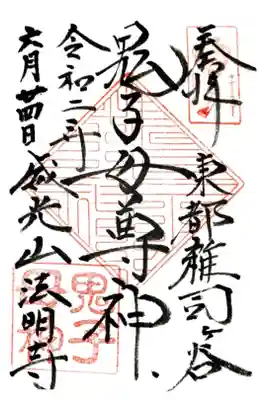 奉拝
東都雑司ヶ谷
鬼子母尊神
令和二年
六月廿四日威光山法明寺
鬼子
母神